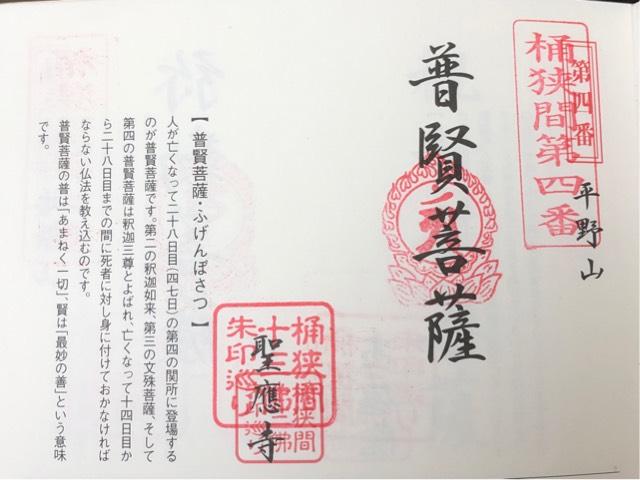 桶狭間第四番
第四番
平野山
普賢菩薩
桶狭間
十三佛
朱印巡り
聖應寺
【 普賢菩薩・ふげんぼさつ 】
人が亡くなって二十八日目(四七日)の第四の関所に登場する
のが普賢菩薩です。第二の釈迦如来、第三の文殊菩薩、そして
第四の普賢菩薩は釈迦三尊とよばれ、亡くなって十四日目か
ら二十八日目までの間に死者に対し身に付けておかなければ
ならない仏法を教え込むのです。
普賢菩薩の普は「あまねく一切」、賢は「最妙の善」という意味
です。